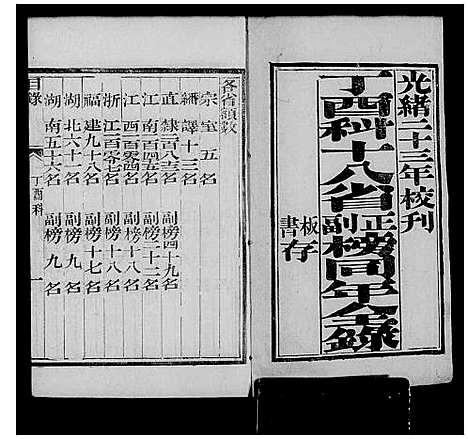 光緒二十三年校刊
丁酉科十八省正副榜同年全錄
板存
書
各省額數
宗室五名
繙譯十三名
直隸二百八吉名 副榜四十九名
江南一百四五名 副榜二十二名
江西一百零四名 副榜十八名
浙江一百零七名 副榜十八名
福建九十八名 副榜十七名
湖北六十一名 副榜九名
湖南五十六名 副榜九名
目錄 丁酉科 一